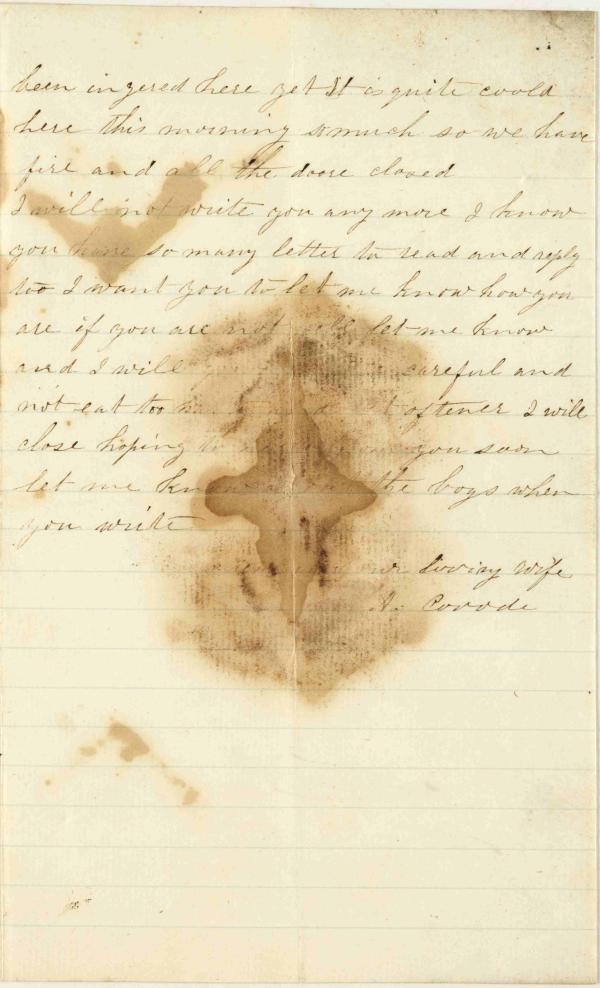 been ingered here yet It is quite coold
here this morning somuch so we have
fire and all the doore closed
I will not write you any more I know
you have so many letter to read and reply
too I want you to let me know how you
are if you are not well let me know
and I will careful and
not eat too oftener I will
close hoping to you soon
let me know the boys when
you write
Loving Wife
A. Covode